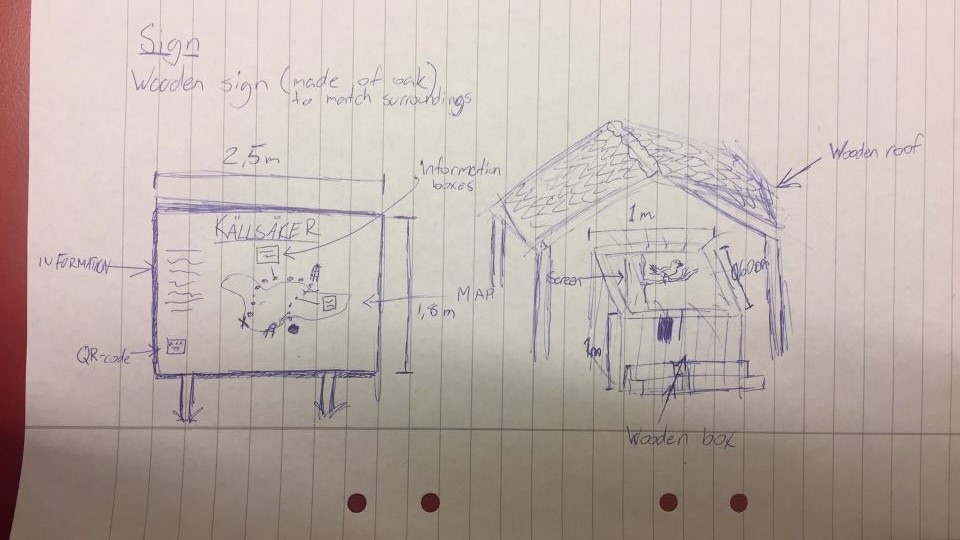 Sign
Wooden sign (made of oak)
to match surroundings
2,5 m
Information
boxes
KÄLLSÅKER
INFORMATION
MAP
1,8 m
QR-code
Wooden roof
1m
Screen
1m
Wooden box